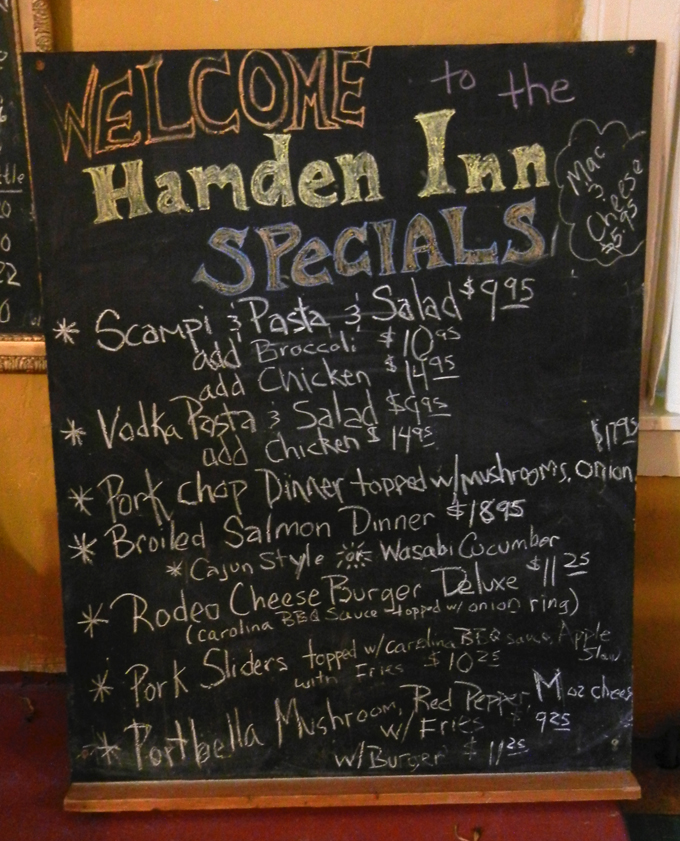 WELCOME to the
Hamden Inn
SPECIALS
Mac
&
Cheese
$5.95
* Scampi & Pasta & Salad $9.95
add Broccoli $10.95
add Chicken $14.95
* Vodka Pasta & Salad $9.95
add Chicken $14.95
$17.95
* Pork chop Dinner topped w/mushrooms, onion
* Broiled Salmon Dinner $18.95
* Cajun Style or Wasabi Cucumber
* Rodeo Cheese Burger Deluxe $11.25
(Carolina BBQ Sauce topped w/ onion ring)
* Pork Sliders topped w/carolina BBQ sauce, Apple Slaw
with Fries $10.25
* Portbella Mushroom, Red Pepper, Moz chees
w/ Fries $ 9.25
w/Burger $ 11.25